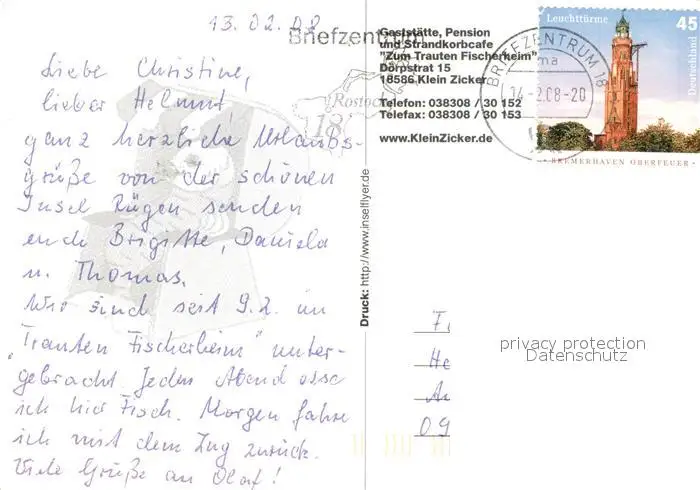 13.02.08
Liebe Christine,
lieber Helmut
ganz herzliche Urlaubs-
grüße von der schönen
Insel Rügen senden
euch Brigitte, Daniela
u. Thomas.
Wir sind seit 9.2. im
"Trauten Fischerheim" unter-
gebracht. Jeden Abend esse
ich hier Fisch. Morgen fahre
ich mit dem Zug zurück.
Viele Grüße an Olaf!
Briefzentrum
Rostock
18
Gaststätte, Pension
und Strandkorbcafe
"Zum Trauten Fischerheim"
Dörpstrat 15
18586 Klein Zicker
Telefon: 038308 / 30 152
Telefax: 038308 / 30 153
www.KleinZicker.de
Druck: http://www.inselflyer.de
BRIEFZENTRUM 18
14.-2.08-20
Leuchttürme
45
Deutschland
BREMERHAVEN OBERFEUER
privacy protection
Datenschutz
He
09